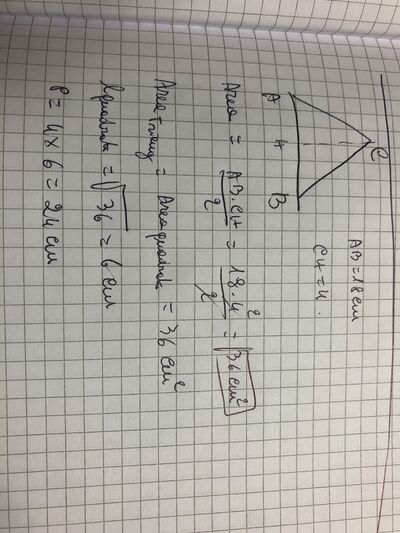 C
A H B
AB = 18 cm
CH = 4
Area = AB · CH / 2 = 18 · 4 2 / 2 = 36 cm²
Area = Area quadrato = 36 cm²
l quadrato = √36 = 6 cm
P = 4 x 6 = 24 cm